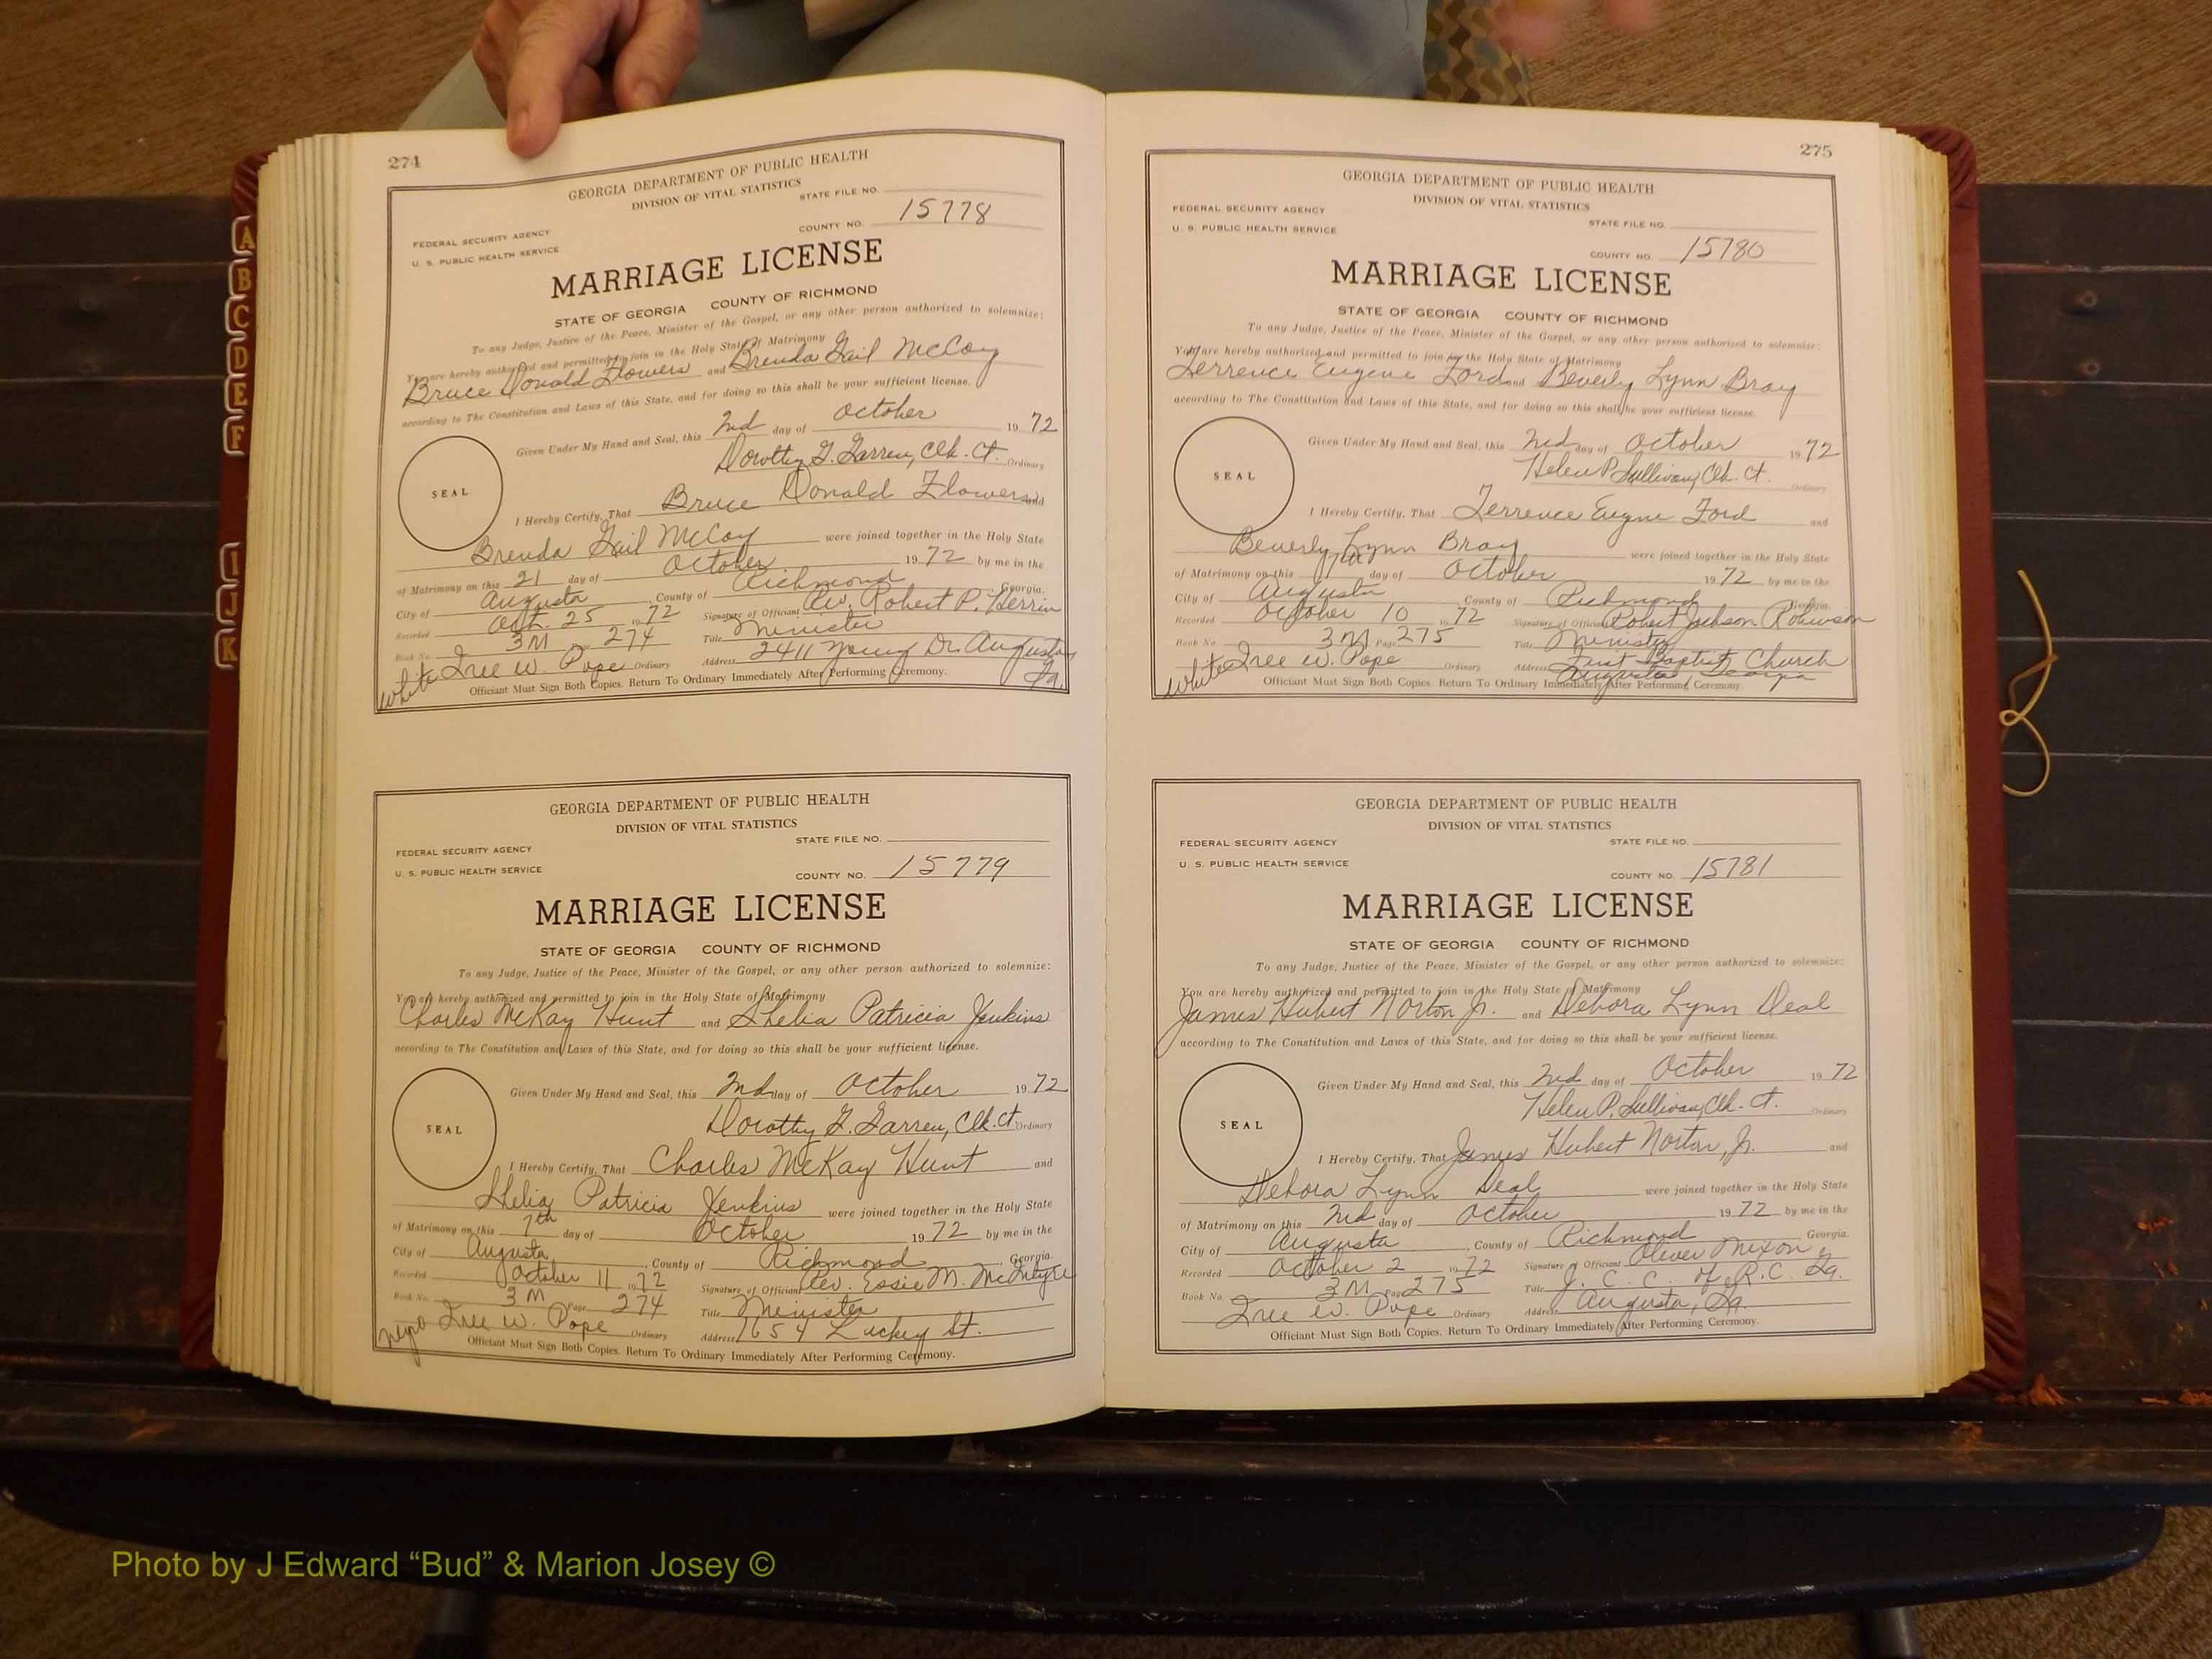 274
GEORGIA DEPARTMENT OF PUBLIC HEALTH
DIVISION OF VITAL STATISTICS
STATE FILE NO.
FEDERAL SECURITY AGENCY
COUNTY NO. 15778
U. S. PUBLIC HEALTH SERVICE
MARRIAGE LICENSE
STATE OF GEORGIA COUNTY OF RICHMOND
To any Judge, Justice of the Peace, Minister of the Gospel, or any other person authorized to solemnize:
You are hereby authorized and permitted to join in the Holy State of Matrimony
Bruce Donald Flowers and Brenda Gail McCoy
according to The Constitution and Laws of this State, and for doing so this shall be your sufficient license.
Given Under My Hand and Seal, this 2nd day of October 19 72
Dorothy G. Garren, Clk. Ct. Ordinary
SEAL
I Hereby Certify, That Bruce Donald Flowers and
Brenda Gail McCoy were joined together in the Holy State
of Matrimony on this 21 day of October 19 72 by me in the
City of Augusta, County of Richmond Georgia.
Recorded Oct. 25 19 72 Signature of Officiant Rev. Robert P. Herrin
Book No. 3M Page 274 Title Minister
white Iree W. Pope Ordinary Address 2411 Young Dr. Augusta, Ga.
Officiant Must Sign Both Copies. Return To Ordinary Immediately After Performing Ceremony.
GEORGIA DEPARTMENT OF PUBLIC HEALTH
DIVISION OF VITAL STATISTICS
STATE FILE NO.
FEDERAL SECURITY AGENCY
U. S. PUBLIC HEALTH SERVICE
COUNTY NO. 15779
MARRIAGE LICENSE
STATE OF GEORGIA COUNTY OF RICHMOND
To any Judge, Justice of the Peace, Minister of the Gospel, or any other person authorized to solemnize:
You are hereby authorized and permitted to join in the Holy State of Matrimony
Charles McKay Hunt and Shelia Patricia Jenkins
according to The Constitution and Laws of this State, and for doing so this shall be your sufficient license.
Given Under My Hand and Seal, this 2nd day of October 19 72
Dorothy G. Garren, Clk. Ct. Ordinary
SEAL
I Hereby Certify, That Charles McKay Hunt and
Shelia Patricia Jenkins were joined together in the Holy State
of Matrimony on this 7th day of October 19 72 by me in the
City of Augusta, County of Richmond, Georgia.
Recorded October 11 19 72 Signature of Officiant Rev. Essie M. McIntyre
Book No. 3M Page 274 Title Minister
negro Iree W. Pope Ordinary Address 1654 Luckey St.
Officiant Must Sign Both Copies. Return To Ordinary Immediately After Performing Ceremony.
275
GEORGIA DEPARTMENT OF PUBLIC HEALTH
DIVISION OF VITAL STATISTICS
FEDERAL SECURITY AGENCY
STATE FILE NO.
U. S. PUBLIC HEALTH SERVICE
COUNTY NO. 15780
MARRIAGE LICENSE
STATE OF GEORGIA COUNTY OF RICHMOND
To any Judge, Justice of the Peace, Minister of the Gospel, or any other person authorized to solemnize:
You are hereby authorized and permitted to join in the Holy State of Matrimony
Terrence Eugene Ford and Beverly Lynn Bray
according to The Constitution and Laws of this State, and for doing so this shall be your sufficient license.
Given Under My Hand and Seal, this 2nd day of October 19 72
Helen P. Sullivan, Clk. Ct.
Ordinary
SEAL
I Hereby Certify, That Terrence Eugene Ford and
Beverly Lynn Bray were joined together in the Holy State
of Matrimony on this 7th day of October 19 72 by me in the
City of Augusta, County of Richmond Georgia.
Recorded October 10 19 72 Signature of Officiant Robert Jackson Robinson
Book No. 3M Page 275 Title Minister
white Iree W. Pope Ordinary Address First Baptist Church
Augusta, Georgia
Officiant Must Sign Both Copies. Return To Ordinary Immediately After Performing Ceremony.
GEORGIA DEPARTMENT OF PUBLIC HEALTH
DIVISION OF VITAL STATISTICS
FEDERAL SECURITY AGENCY
STATE FILE NO.
U. S. PUBLIC HEALTH SERVICE
COUNTY NO. 15781
MARRIAGE LICENSE
STATE OF GEORGIA COUNTY OF RICHMOND
To any Judge, Justice of the Peace, Minister of the Gospel, or any other person authorized to solemnize:
You are hereby authorized and permitted to join in the Holy State of Matrimony
James Hubert Norton Jr. and Debora Lynn Deal
according to The Constitution and Laws of this State, and for doing so this shall be your sufficient license.
Given Under My Hand and Seal, this 2nd day of October 19 72
Helen P. Sullivan, Clk. Ct. Ordinary
SEAL
I Hereby Certify, That James Hubert Norton, Jr. and
Debora Lynn Deal were joined together in the Holy State
of Matrimony on this 2nd day of October 19 72 by me in the
City of Augusta, County of Richmond Georgia.
Recorded October 2 19 72 Signature of Officiant Oliver Mixon
Book No. 3M Page 275 Title J. C. C. of R.C. Ga.
Iree W. Pope Ordinary Address Augusta, Ga.
Officiant Must Sign Both Copies. Return To Ordinary Immediately After Performing Ceremony.
A
B
C
D
E
F
I
J
K
Photo by J Edward “Bud” & Marion Josey ©